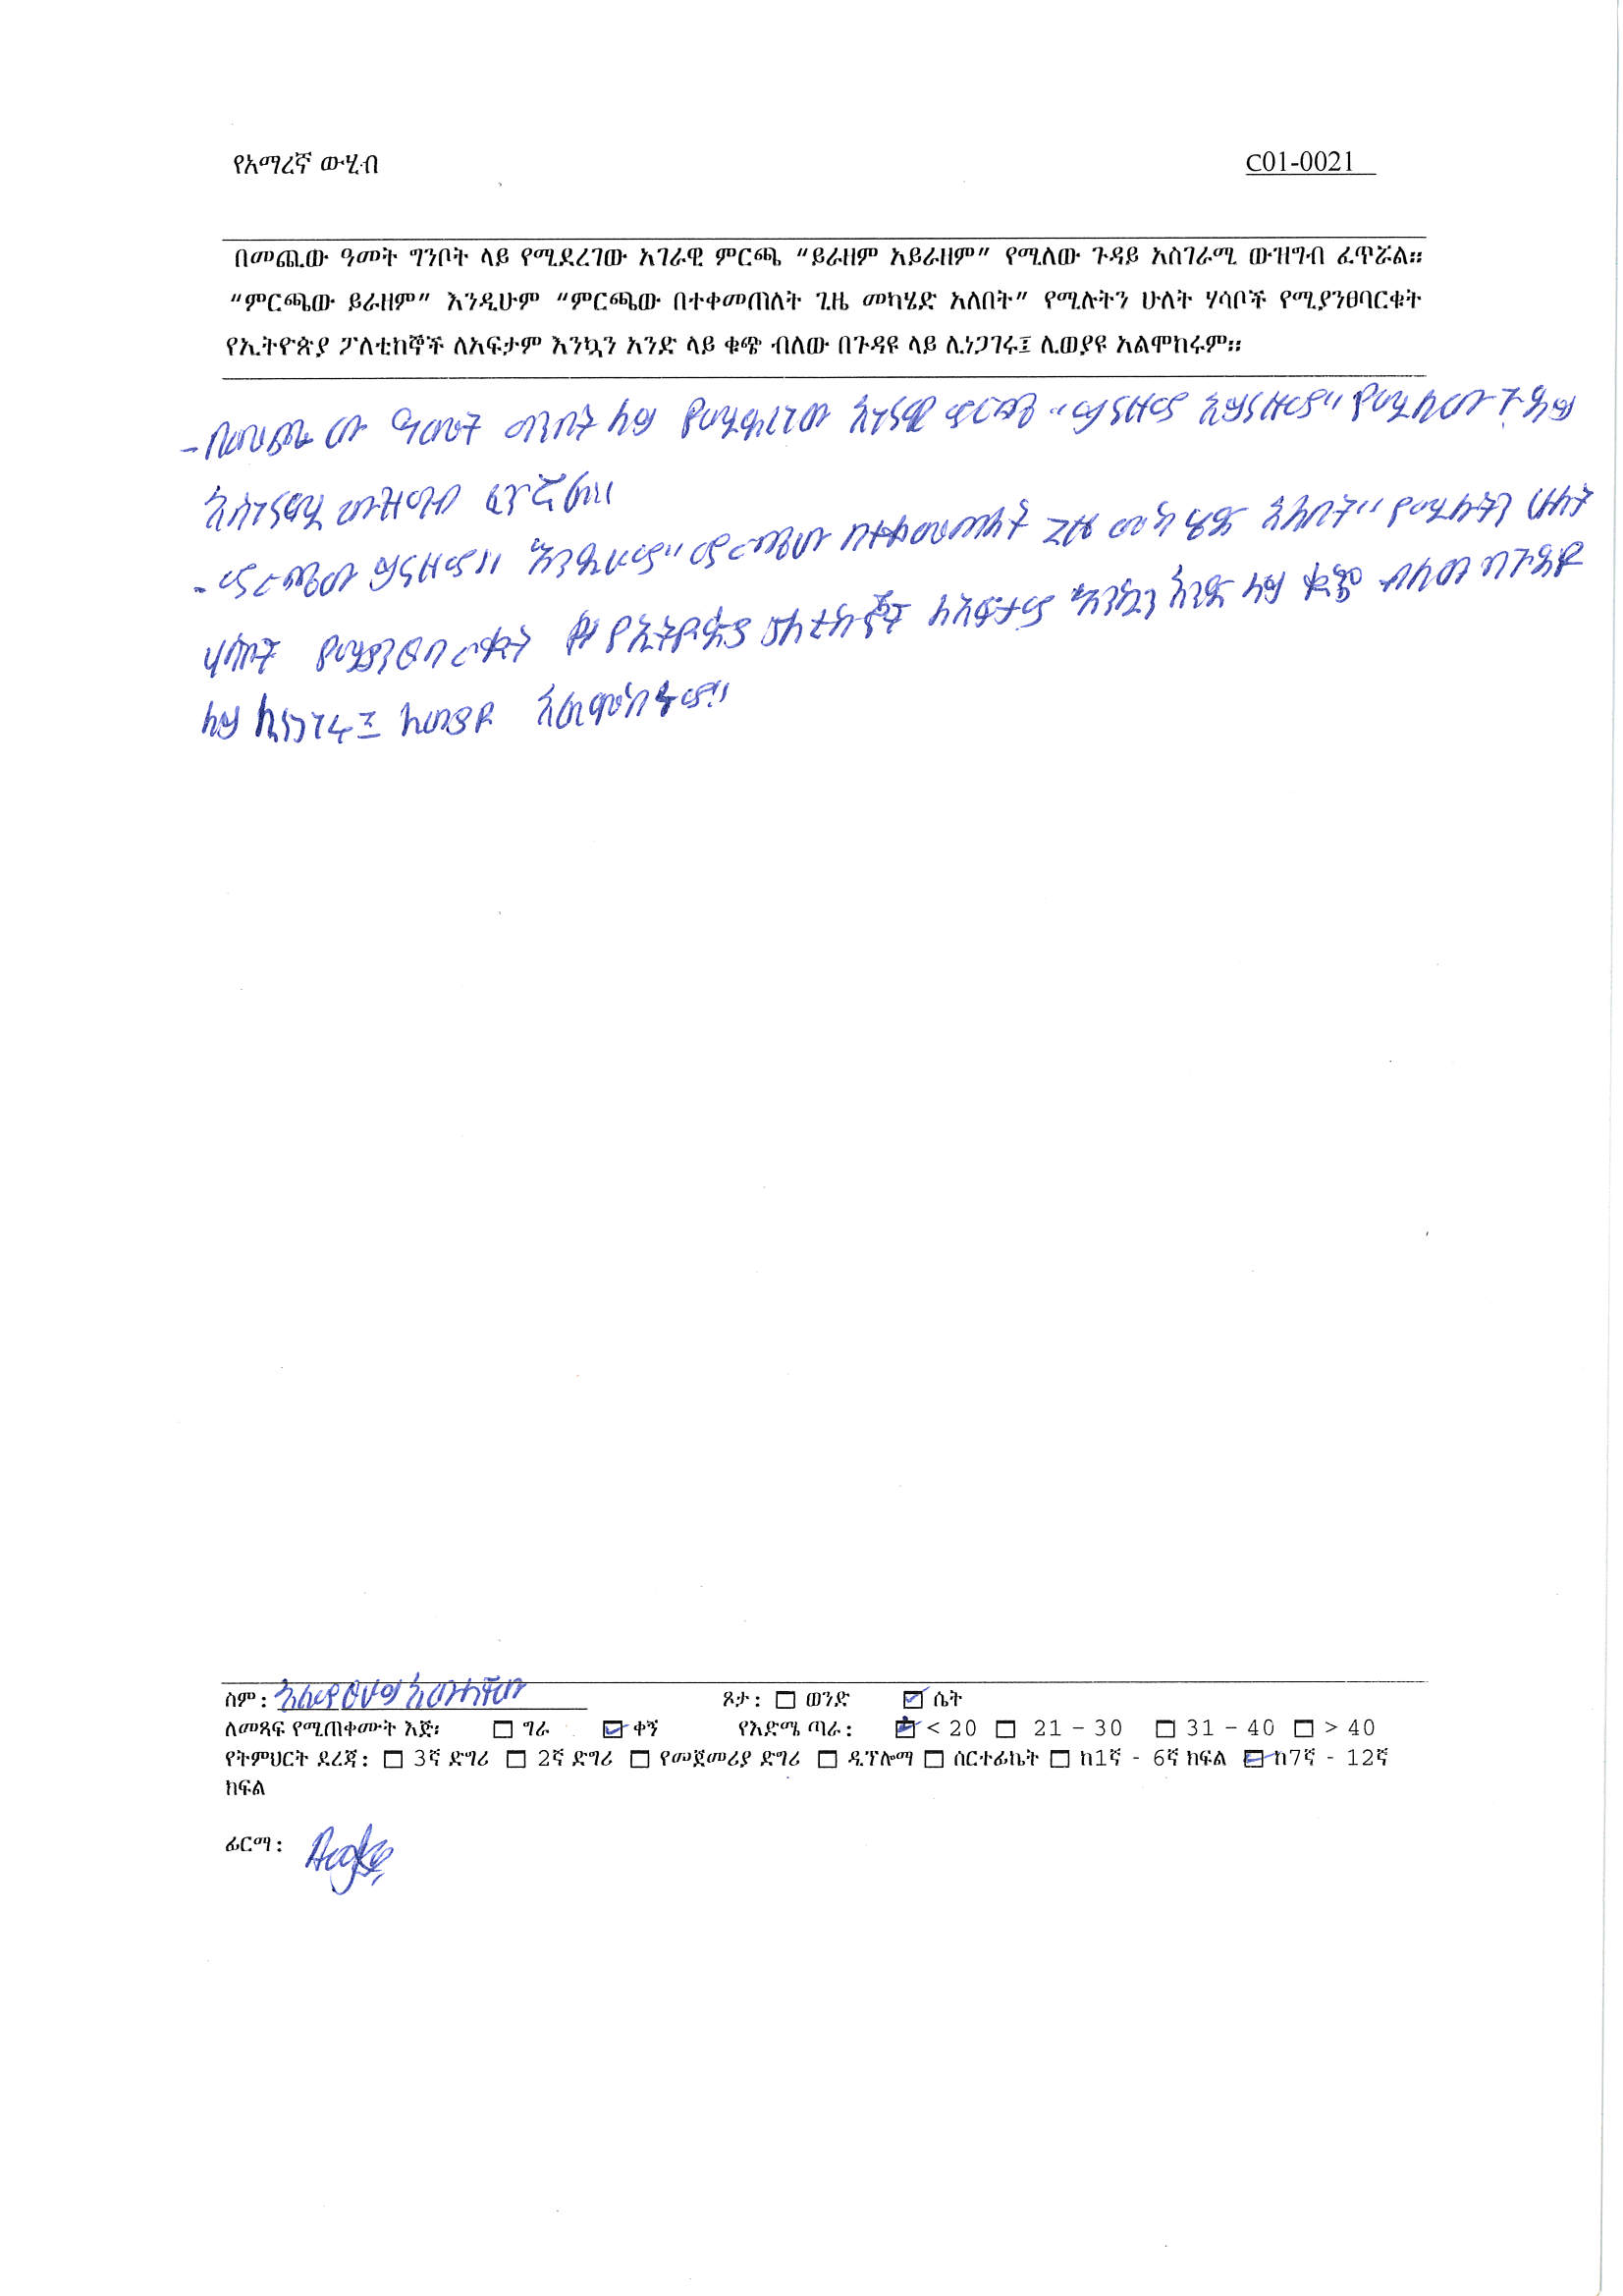 የአማረኛ ውሂብ C01-0021
በመጪው ዓመት ግንቦት ላይ የሚደረገው አገራዊ ምርጫ “ይራዘም አይራዘም” የሚለው ጉዳይ አስገራሚ ውዝግብ ፈጥሯል።
“ምርጫው ይራዘም” እንዲሁም “ምርጫው በተቀመጠለት ጊዜ መካሄድ አለበት” የሚሉትን ሁለት ሃሳቦች የሚያንፀባርቁት
የኢትዮጵያ ፖለቲከኞች ለአፍታም እንኳን አንድ ላይ ቁጭ ብለው በጉዳዩ ላይ ሊነጋገሩ፤ ሊወያዩ አልሞከሩም።
- በመጪው ዓመት ግንቦት ላይ የሚደረገው አገራዊ ምርጫ “ይራዘም አይራዘም” የሚለው ጉዳይ
አስገራሚ ውዝግብ ፈጥሯል።
- ምርጫው ይራዘም" እንዲሁም "ምርጫው በተቀመጠለት ጊዜ መካሄድ አለበት" የሚሉትን ሁለት
ሃሳቦች የሚያንፀባርቁት የኢትዮጵያ ፖለቲከኞች ለአፍታም እንኳን አንድ ላይ ቁጭ ብለው በጉዳዩ
ላይ ሊነጋገሩ፤ ሊወያዩ አልሞከሩም።
ስም: ጾታ: ወንድ ሴት
ለመጻፍ የሚጠቀሙት እጅ፡ ግራ ቀኝ የእድሜ ጣራ: < 20 21 – 30 31 – 40 > 40
የትምህርት ደረጃ: 3ኛ ድግሪ 2ኛ ድግሪ የመጀመሪያ ድግሪ ዲፕሎማ ሰርተፊኬት ከ1ኛ - 6ኛ ክፍል ከ7ኛ - 12ኛ
ክፍል
ፊርማ: